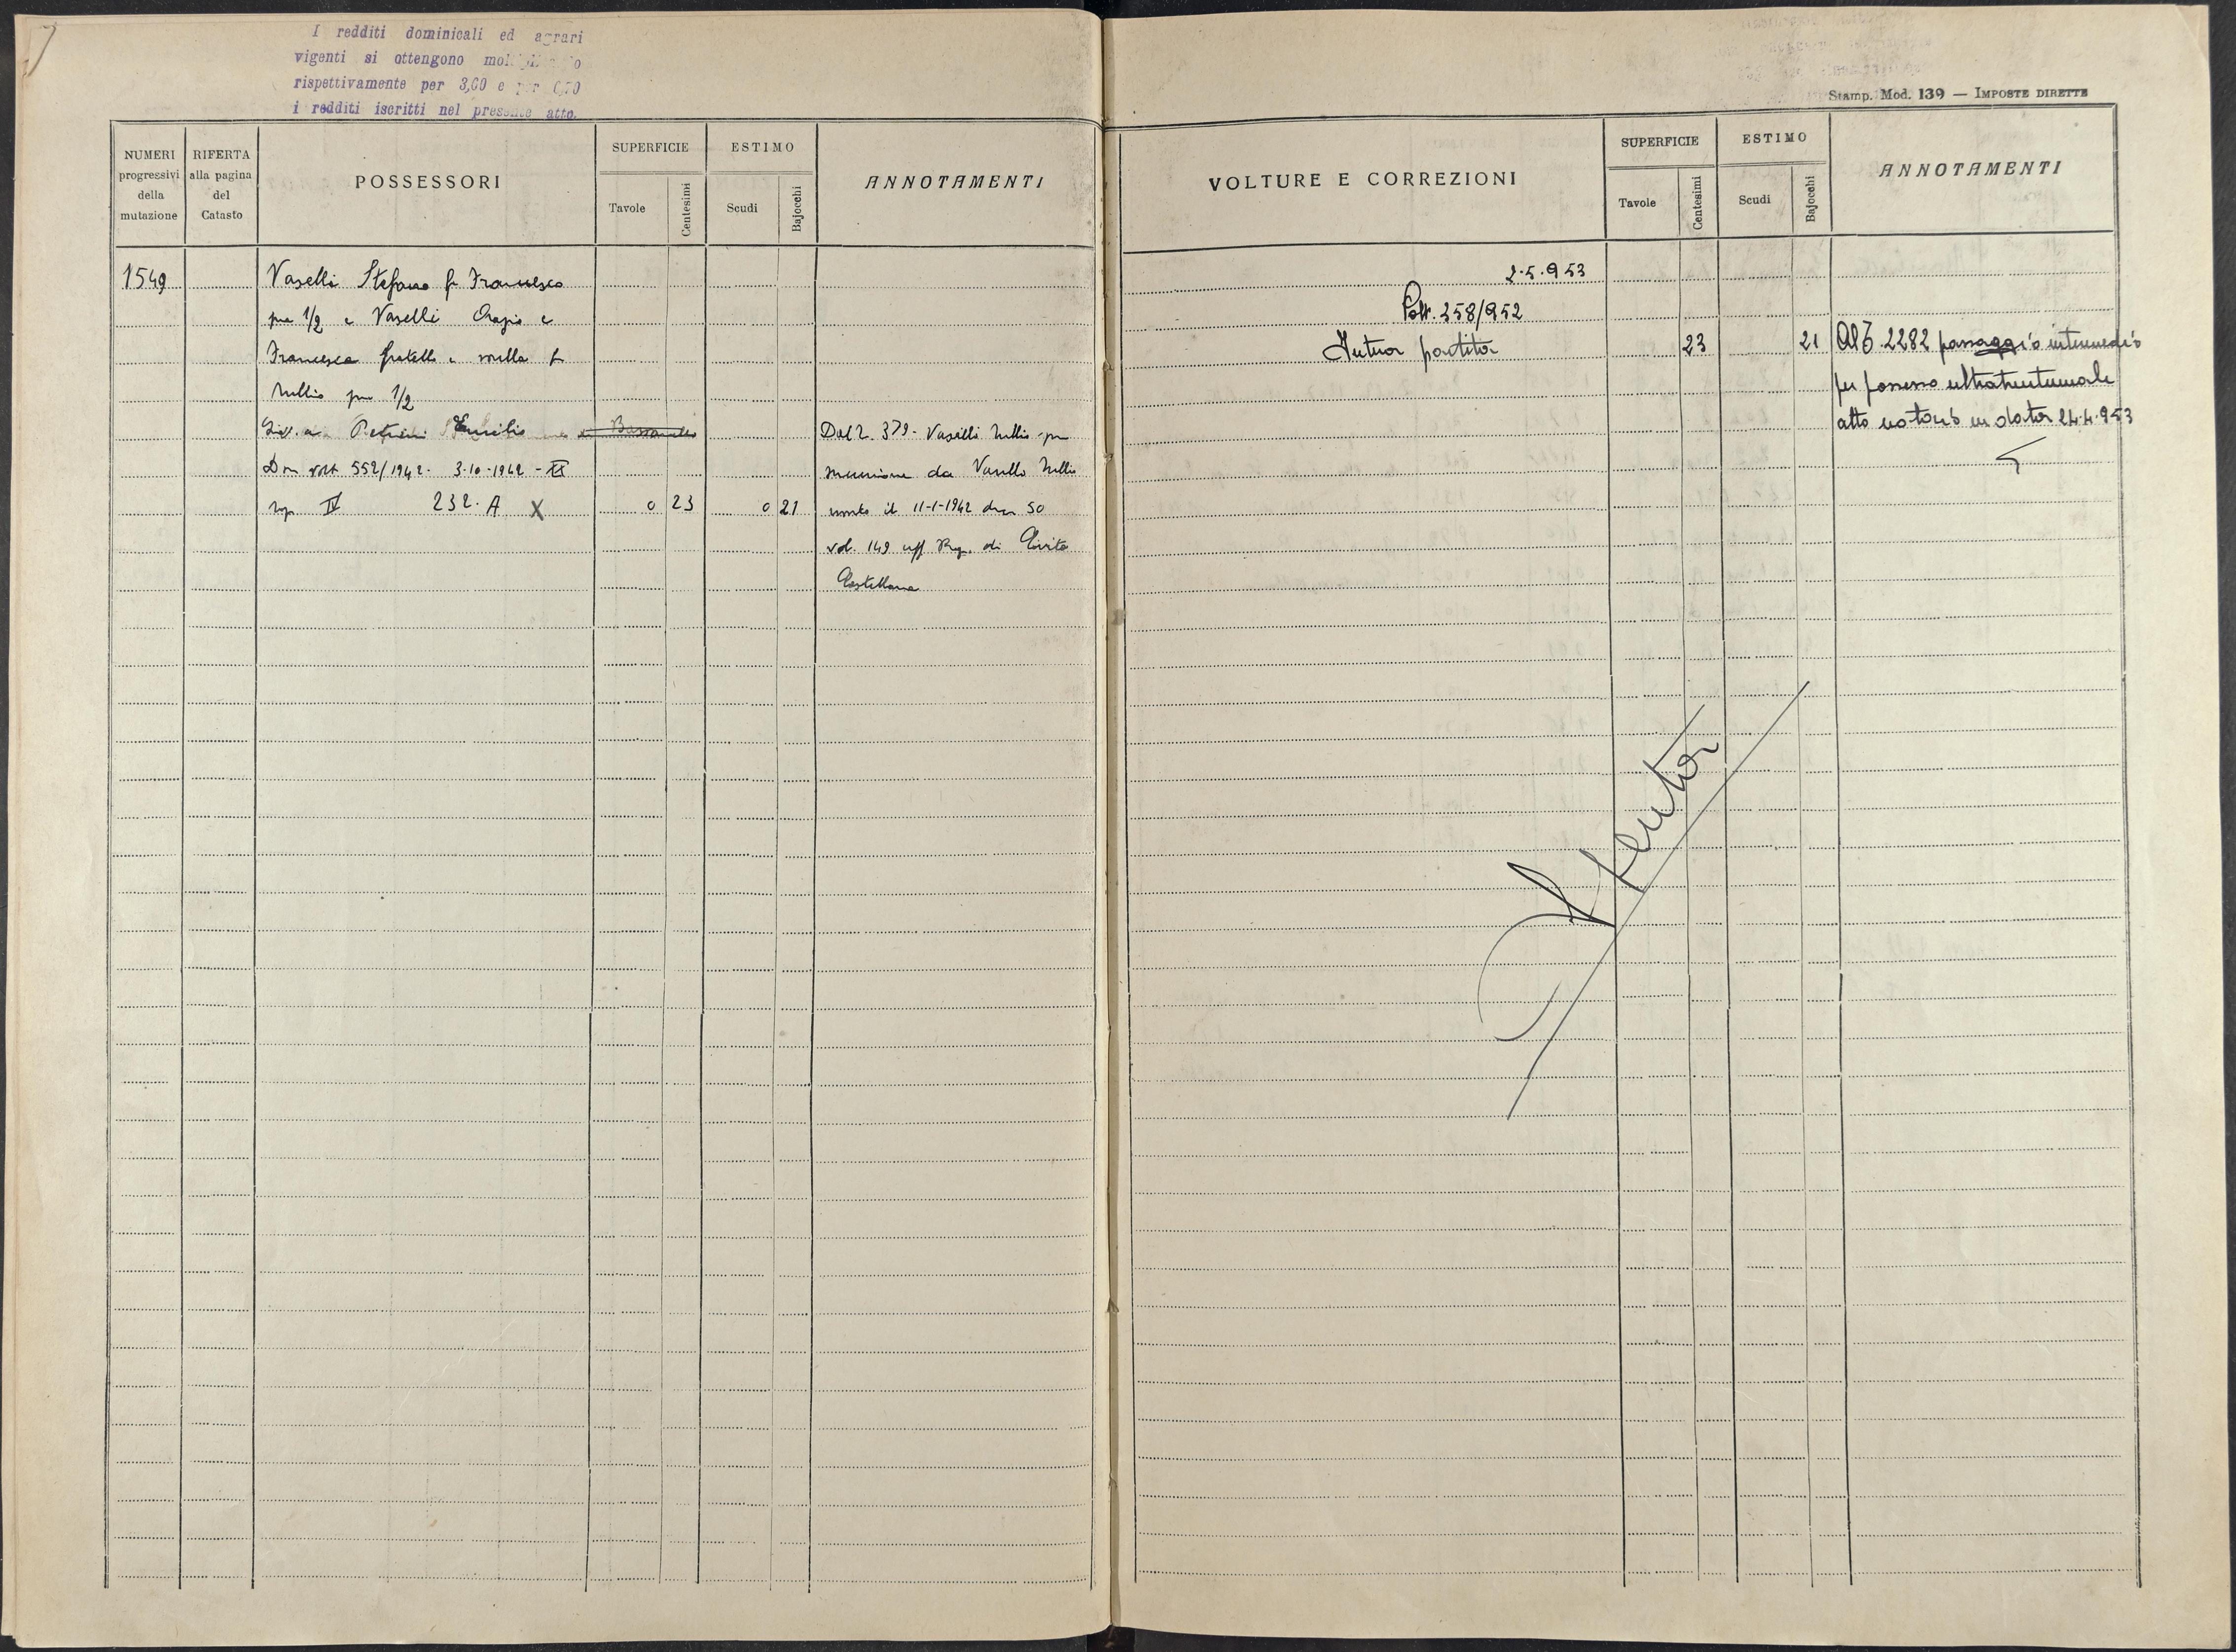 I redditi dominicali ed agrari
vigenti si ottengono
rispettivamente per 3,60 e per 0,70
i redditi iscritti nel presente atto.
Stamp. Mod. 139 — IMPOSTE DIRETTE
NUMERI progressivi della mutazione
RIFERTA alla pagina del Catasto
POSSESSORI
SUPERFICIE
Tavole
Centesimi
ESTIMO
Scudi
Bajocchi
ANNOTAMENTI
1549 Vaselli Stefano fu Francesco
pre 1/2 e Vaselli Orazio e
Francesca fratello e sorella fu
Tullio per 1/2
Liv. a Petrini Emilio
Dm volt 552/1942. 3.10.1942 - XX
sez IV 232. A X 0 23 0 21
Dal 2. 379. Vaselli Tullio per
successione da Vasello Tullio
morto il 11-1-1942 den 50
vol. 149 uff Reg. di Civita
Castellana
VOLTURE E CORREZIONI
SUPERFICIE
Tavole
Centesimi
ESTIMO
Scudi
Bajocchi
ANNOTAMENTI
2.5.953
Volt. 358/952
Intera partita 23 21
Al 2282 passaggio intermedio
per possesso ultratrentennale
atto notorio in data 24.4.953
Spenta